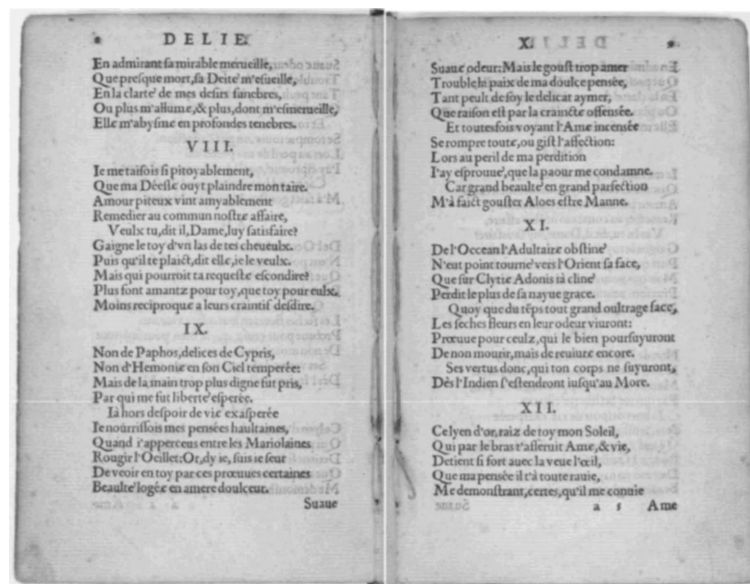 8 DELIE.
En admirant sa mirable merueille,
Que presque mort, sa Deité m'esueille,
En la clarté de mes desirs funebres,
Ou plus m'allume, & plus, dont m'esmerueille,
Elle m'abysme en profondes tenebres.
VIII.
Ie me taisois si pitoyablement,
Que ma Déesse ouyt plaindre mon taire.
Amour piteux vint amyablement
Remedier au commun nostre affaire,
Veulx tu, dit il, Dame, luy satisfaire?
Gaigne le toy d'vn las de tes cheueulx.
Puis qu'il te plaict, dit elle, ie le veulx.
Mais qui pourroit ta requeste escondire?
Plus font amantz pour toy, que toy pour eulx,
Moins reciproque a leurs craintif desdire.
IX.
Non de Paphos, delices de Cypris,
Non d'Hemonie en son Ciel temperée:
Mais de la main trop plus digne fut pris,
Par qui me fut liberté esperée.
Ià hors despoir de vie exasperée
Ie nourrissois mes pensées haultaines,
Quand i'apperceus entre les Mariolaines
Rougir l'Oeillet: Or, dy ie, suis ie seur
De veoir en toy par ces prœuues certaines
Beaulté logée en amere doulceur.
Suaue
X. 9
Suaue odeur: Mais le goust trop amer
Trouble la paix de ma doulce pensée,
Tant peult de soy le delicat aymer,
Que raison est par la craincte offensée.
Et toutesfois voyant l'Ame incensée
Se rompre toute, ou gist l'affection:
Lors au peril de ma perdition
I'ay esprouué, que la paour me condamne.
Car grand beaulté en grand parfection
M'à faict gouster Aloes estre Manne.
XI.
De l'Occean l'Adultaire obstiné
N'eut point tourné vers l'Orient sa face,
Que sur Clytie Adonis ià cliné
Perdit le plus de sa nayue grace.
Quoy que du tẽps tout grand oultrage face,
Les seches fleurs en leur odeur viuront:
Prœuue pour ceulz, qui le bien poursuyuront
De non mourir, mais de reuiure encore.
Ses vertus donc, qui ton corps ne suyuront,
Dès l'Indien s'estendront iusqu'au More.
XII.
Ce lyen d'or, raiz de toy mon Soleil,
Qui par le bras t'asseruit Ame, & vie,
Detient si fort auec la veue l'œil,
Que ma pensée il t'à toute rauie,
Me demonstrant, certes, qu'il me conuie
a 5 Ame